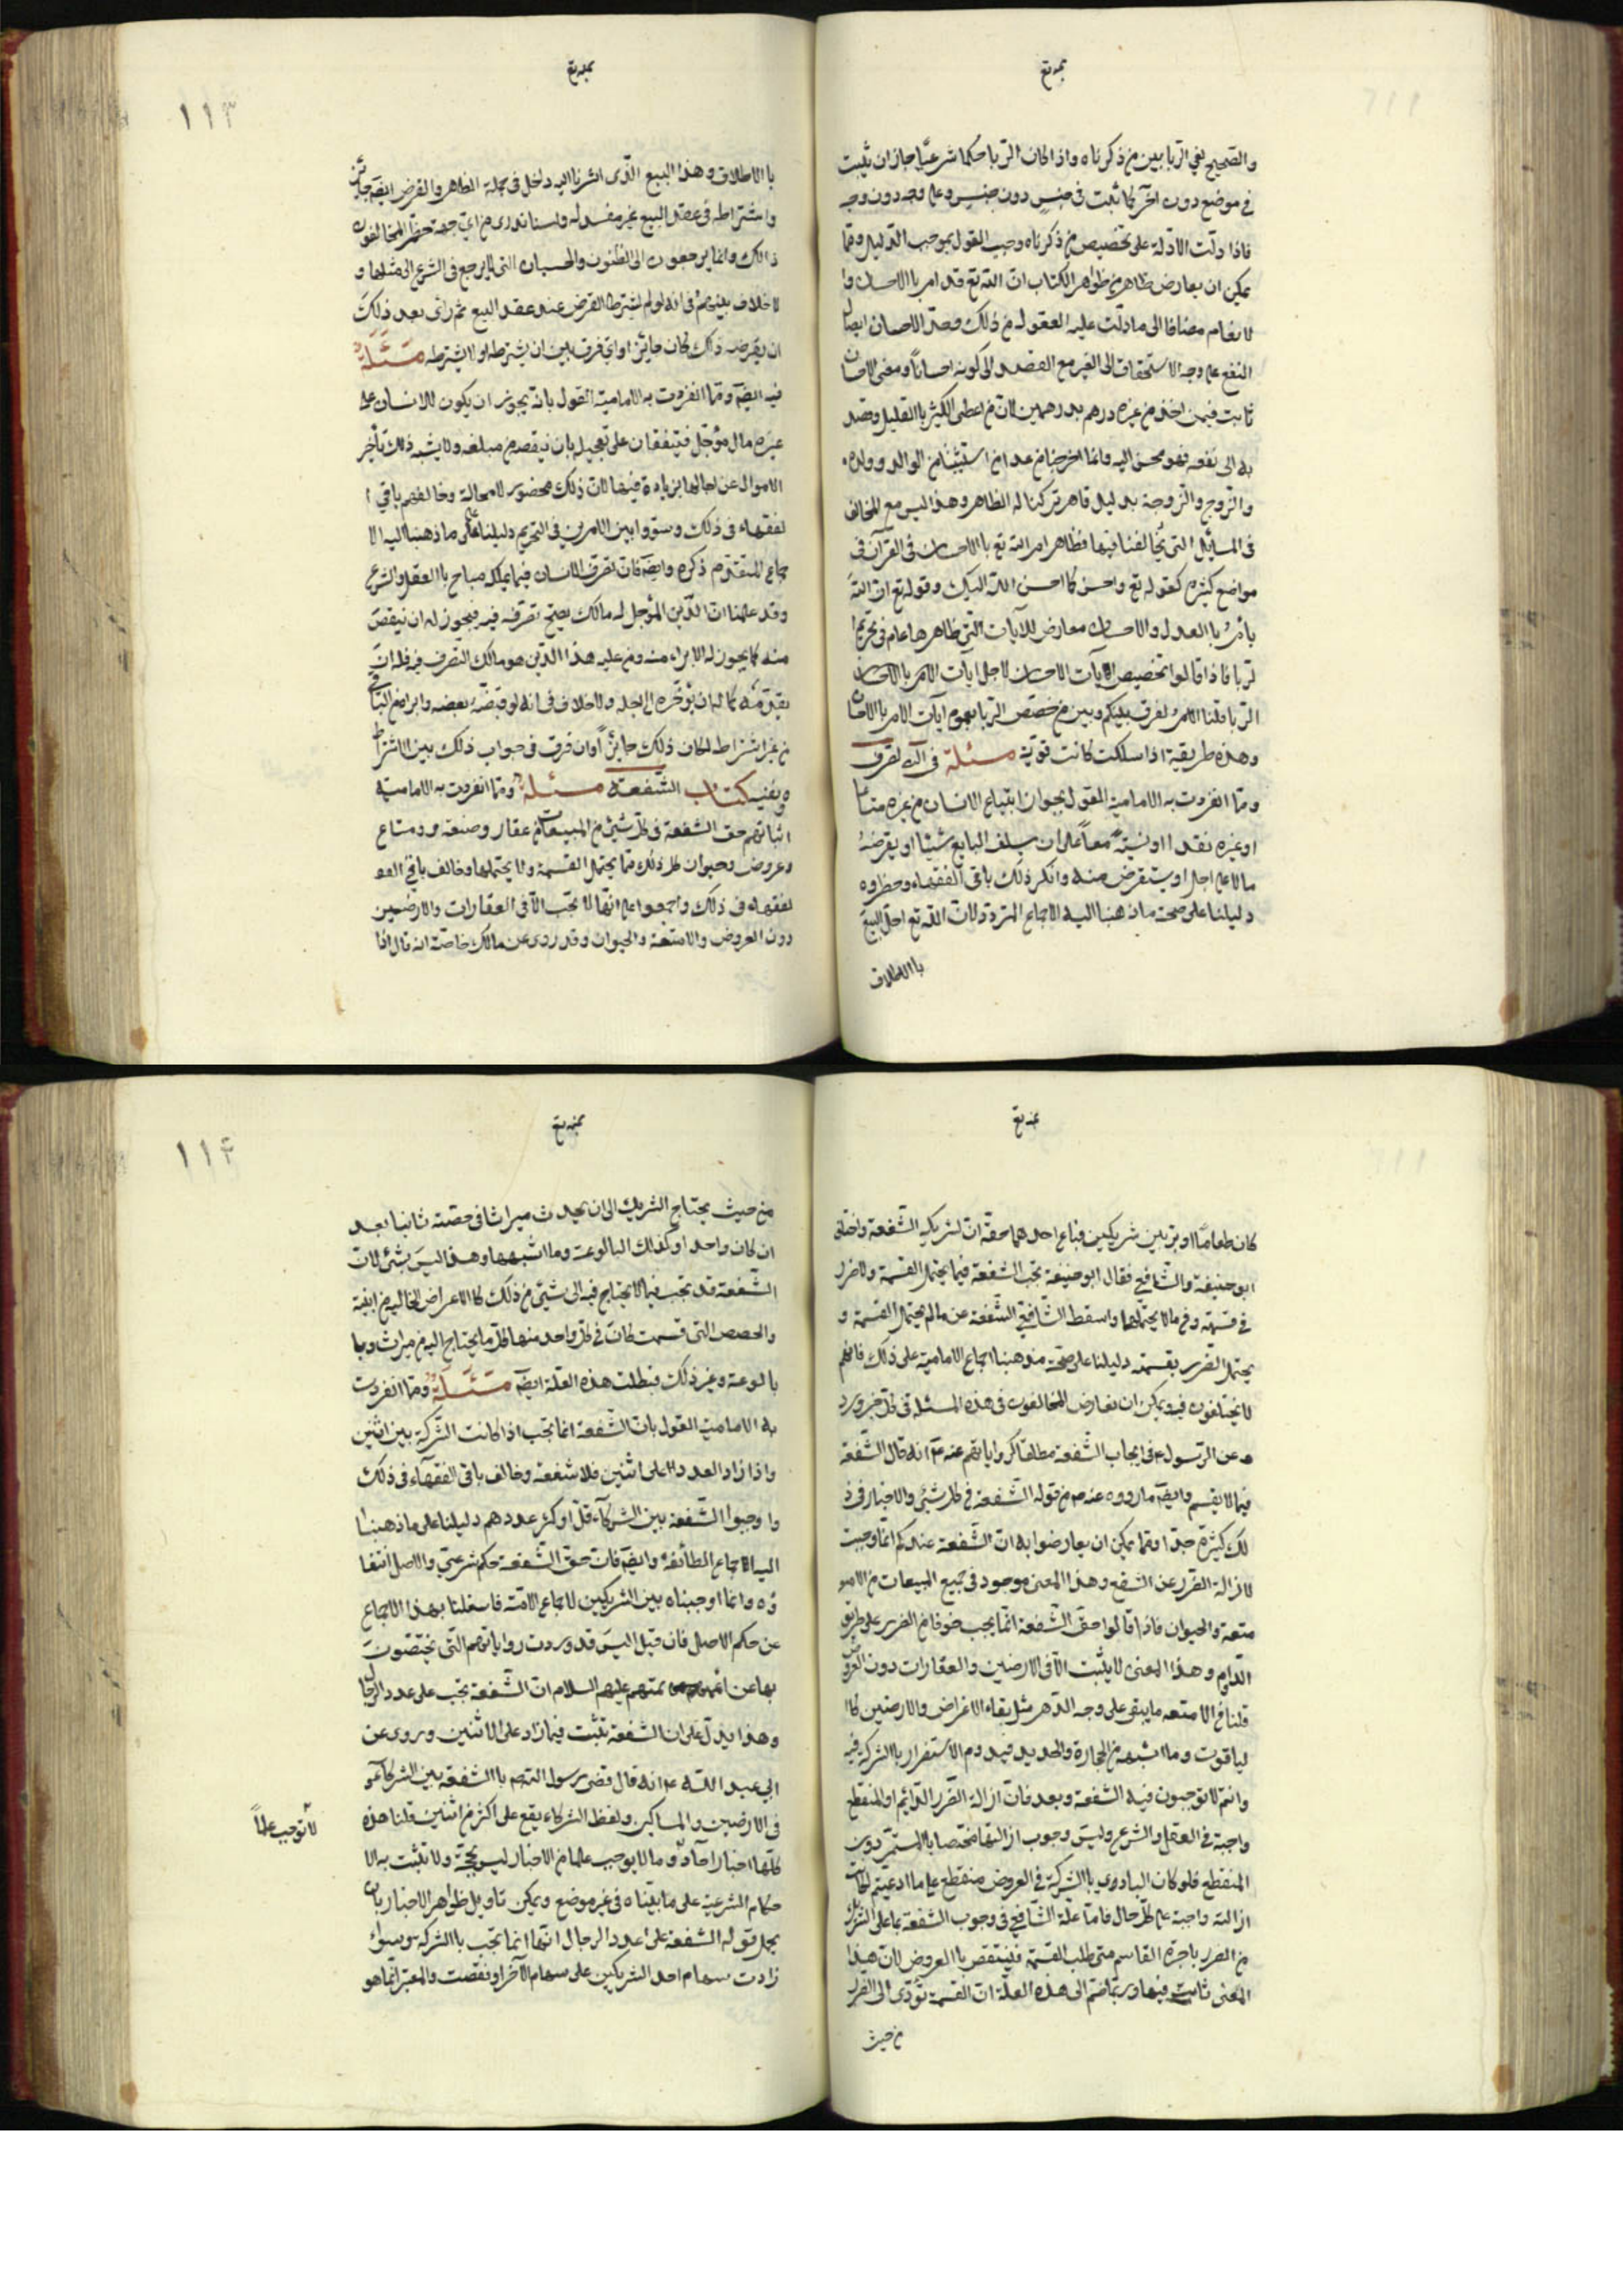 بمنه تع
والصحيح نفي الربا بين من ذكرناه واذا كان الربا حكما شرعيا جاز ان يثبت
في موضع دون آخر كما ثبت في جنس دون جنس وعلى وجه دون وجه
فاذا دلت الادلة على تخصيص من ذكرناه وجب القول بموجب الدليل ومما
يمكن ان يعارض ظاهر من ظواهر الكتاب ان الله تع قد امر با الاحسان وا
لانعام مضافا الى ما دلت عليه العقول من ذلك وحد الاحسان ايصال
النفع على وجه الاستحقاق الى الغير مع القصد الى كونه احسانا ومعنى الاحسان
ثابت فيمن اخذ من غيره درهم بدرهمين لان من اعطى الكثير با القليل وقصد
به الى نفعه فهو محسن اليه وانما اخرجنا من عدا من استثنى من الوالد وولده
والزوج والزوجة بدليل قاهر تركنا له الظاهر وهذا ليس مع المخالف
في المسائل التي يخالفنا فيها فظاهر امر الله تع با الاحسان في القرآن في
مواضع كثيرة كقوله تع واحسن كما احسن الله اليك وقوله تع ان الله
يأمر با العدل والاحسان معارض للآيات التي ظاهرها عام في تحريم ا
لربا فاذا قالوا تخصيص آيات الاحسان لاجل آيات
الربا قلنا لا فرق بينكم وبين من خصص الربا بعموم آيات الامر با الاحسان
وهذه طريقة اذا سلكت كانت قوية مسئلة في
ومما انفردت به الامامية القول بجواز ابتياع الانسان من غيره متاعا
او غيره نقدا او نسيئة معا على ان يسلف البايع شيئا او يقرضه
مالا على اجل او يستقرض منه وانكر ذلك باقي الفقهاء وحظروه
دليلنا على صحة ما ذهبنا اليه الاجماع المتردد لان الله تع احل البيع
با الاطلاق
بمنه تع
١١٣
با الاطلاق وهذا البيع الذي اشرنا اليه داخل في جملة الظاهر والقرض ايضا جائز
واشتراطه في عقد البيع غير مفسد له ولسنا ندري من اي جهة حظر المخالفون
ذالك وانما يرجعون الى الظنون والحسبان التي لا يرجع في الشرع الى مثلها و
لا خلاف بينهم في انه لو لم يشترط القرض عند عقد البيع ثم رأى بعد ذلك
ان يقرضه ذلك كان جائزا واي فرق بين ان يشترطه او لا يشترطه مسئلة
فيه ايضا ومما انفردت به الامامية القول بانه يجوز ان يكون للانسان على
غيره مال مؤجل فيتفقان على تعجيله بان ينقصه من مبلغه ولا يشبه ذلك تأخير
الاموال عن اجالها بزيادة فيها لان ذلك محضور لا محالة وخالفهم باقي ا
لفقهاء في ذلك وسووا بين الامرين في التحريم دليلنا على ما ذهبنا اليه الا
جماع المتقدم ذكره وايضا فان تصرف الانسان فيما يملكه مباح با العقل والشرع
وقد علمنا ان الدين المؤجل له مالك يصح تصرفه فيه فيجوز له ان ينقص
منه كما يجوز له الابراء منه ومن عليه هذا الدين هو مالك التصرف فيه فله ان
يقدمه كما له ان يؤخره الى اجله ولا خلاف في انه لو قبضه بعضه وابرا من الباقي
من غير اشتراط لكان ذلك جائزا واي فرق في جواب ذلك بين الاشتراط
ونفيه كتاب الشفعة مسئلة ومما انفردت به الامامية
اثباتهم حق الشفعة في كل شيئ من المبيعات من عقار وضيعة ومتاع
وعروض وحيوان كل ذلك مما يحتمل القسمة ولا يحتملها وخالف باقي
لفقهاء في ذلك واجمعوا على انها لا تجب الا في العقارات والارضين
دون العروض والامتعة والحيوان وقد روى عن مالك خاصة انه قال اذا
بمنه تع
كان طعاما او بر بين شريكين فباع احدهما حقه ان لشريكه الشفعة واختلف
ابو حنيفة والشافعي فقال ابو حنيفة تجب الشفعة فيما يحتمل القسمة ولا ضرر
في قسمته وفيما لا يحتملها واسقط الشافعي الشفعة عن ما لم يحتمل القسمة و
يحتمل الضرر بقسمته دليلنا على صحة مذهبنا اجماع الامامية على ذلك فانهم
لا يختلفون فيه ويمكن ان يعارض المخالفون في هذه المسئلة في كل خبر ورد
عن الرسول في ايجاب الشفعة مطلقا كرواياتهم عنه انه قال الشفعة
فيما لا يقسم وايضا ما رووه عنه من قوله الشفعة في كل شيئ والاخبار في ذ
لك كثيرة جدا ومما يمكن ان يعارضوا به ان الشفعة عندكم انما وجبت
لازالة الضرر عن الشفيع وهذا المعنى موجود في جميع المبيعات من الا
متعة والحيوان فاذا قالوا حق الشفعة انما يجب خوفا من الضرر على طريق
الدوام وهذا المعنى لا يثبت الا في الارضين والعقارات دون العروض
قلنا في الامتعه ما يبقى على وجه الدهر مثل بقاء الاغراض والارضين كا
لياقوت وما اشبهه من الحجارة والحديد فيدوم الاستضرار با الشركة فيه
وانتم لا توجبون فيه الشفعة وبعد فان ازالة الضرر الدائم او المنقطع
واجبة في العقل والشرع وليس وجوب ازالتها مختصا با المستمر دون
المنقطع فلو كان التأذي با الشركة في العروض منقطع على ما ادعيتم لكانت
ازالته واجبة على كل حال فاما علة الشافعي في وجوب الشفعة بما على الشريك
من الضرر باجرة القاسم متى طلب القسمة فينتقض با العروض لان هذا
المعنى ثابت فيها وربما ضم الى هذه العلة ان القسمة تؤدى الى الضرر
من حيث
بمنه تع
١١٤
من حيث يحتاج الشريك الى ان يحدث ميراثا في حصته ثانيا بعد
ان كان واحدا وكذلك البالوعة وما اشبهها وهذا ليس بشئ لان
الشفعة قد تجب فيما لا يحتاج فيه الى شيئ من ذلك كا الاعراض الخاليه من ابنية
والحصص التي قسمت كان في كل واحد منها كل ما يحتاج اليه من ميراث وبا
بالوعة وغير ذلك فبطلت هذه العلة ايضا مسئلة ومما انفردت
به الامامية القول بان الشفعة انما تجب اذا كانت الشركة بين اثنين
واذا زاد العدد على اثنين فلا شفعة وخالف باقي الفقهاء في ذلك
واوجبوا الشفعة بين الشركاء قل او كثر عددهم دليلنا على ما ذهبنا
اليه الاجماع الطائفة وايضا فان حق الشفعة حكم شرعي والاصل انتفا
ؤه وانما اوجبناه بين الشريكين لاجماع الامة فانتقلنا بهذا الاجماع
عن حكم الاصل فان قيل اليس قد وردت رواياتهم التي تختصون
بها عن ائمتهم عليهم السلام ان الشفعة تجب على عدد الرجال
وهذا يدل على ان الشفعة تثبت فيما زاد على الاثنين وروى عن
ابي عبد الله انه قال قضى رسول الله با الشفعة بين الشركاء
في الارضين والمساكين ولفظ الشركاء يقع على اكثر من اثنين قلنا هذه
كلها اخبار آحاد وما لا يوجب علما من الاخبار ليس بحجة ولا تثبت به الا
حكام الشرعية على ما بيناه في غير موضع ويمكن تاويل ظواهر الاخبار بان
يحمل قوله الشفعة على عدد الرجال انها انما تجب با الشركة سواء
زادت سهام احد الشريكين على سهام الآخر او نقصت والمعتبر انما هو
لا توجب علما